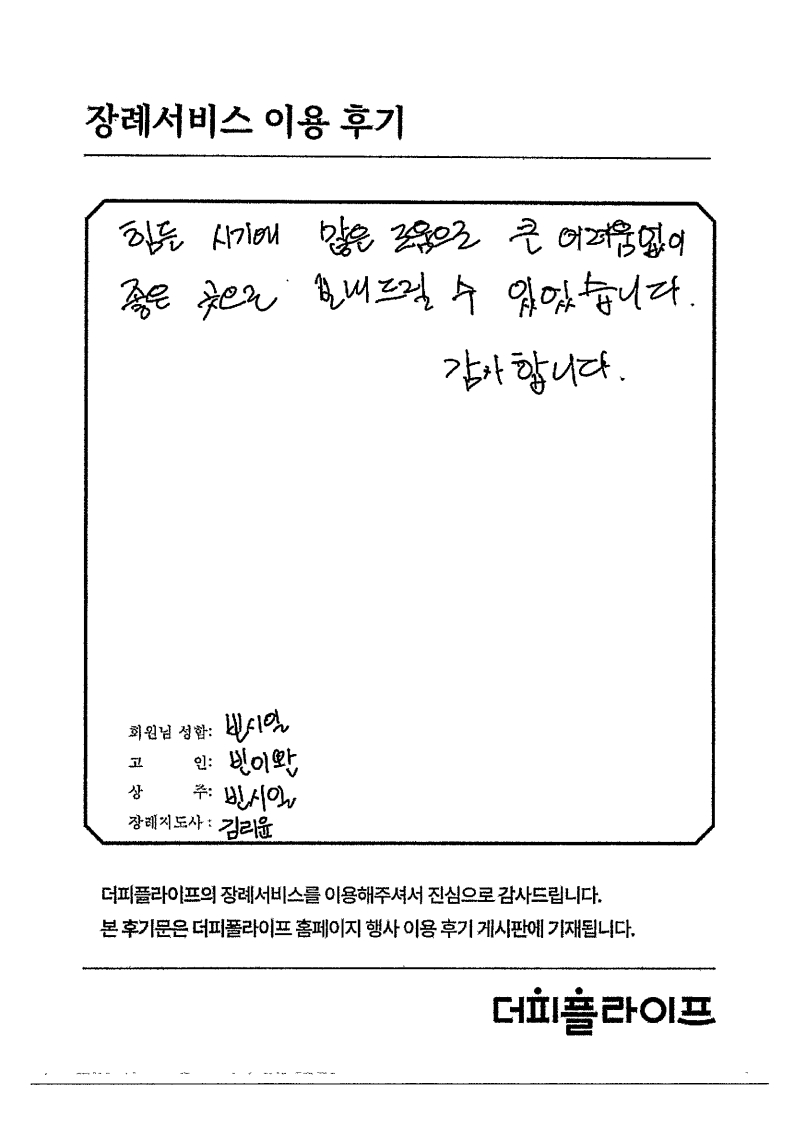 장례서비스 이용 후기
힘든 시기에 많은 도움으로 큰 어려움없이
좋은 곳으로 보내드릴 수 있었습니다.
감사합니다.
회원님 성함: 빈시일
고 인: 빈이
상 주: 빈시일
장례지도사: 김리윤
더피플라이프의 장례서비스를 이용해주셔서 진심으로 감사드립니다.
본 후기문은 더피플라이프 홈페이지 행사 이용 후기 게시판에 기재됩니다.
더피플라이프